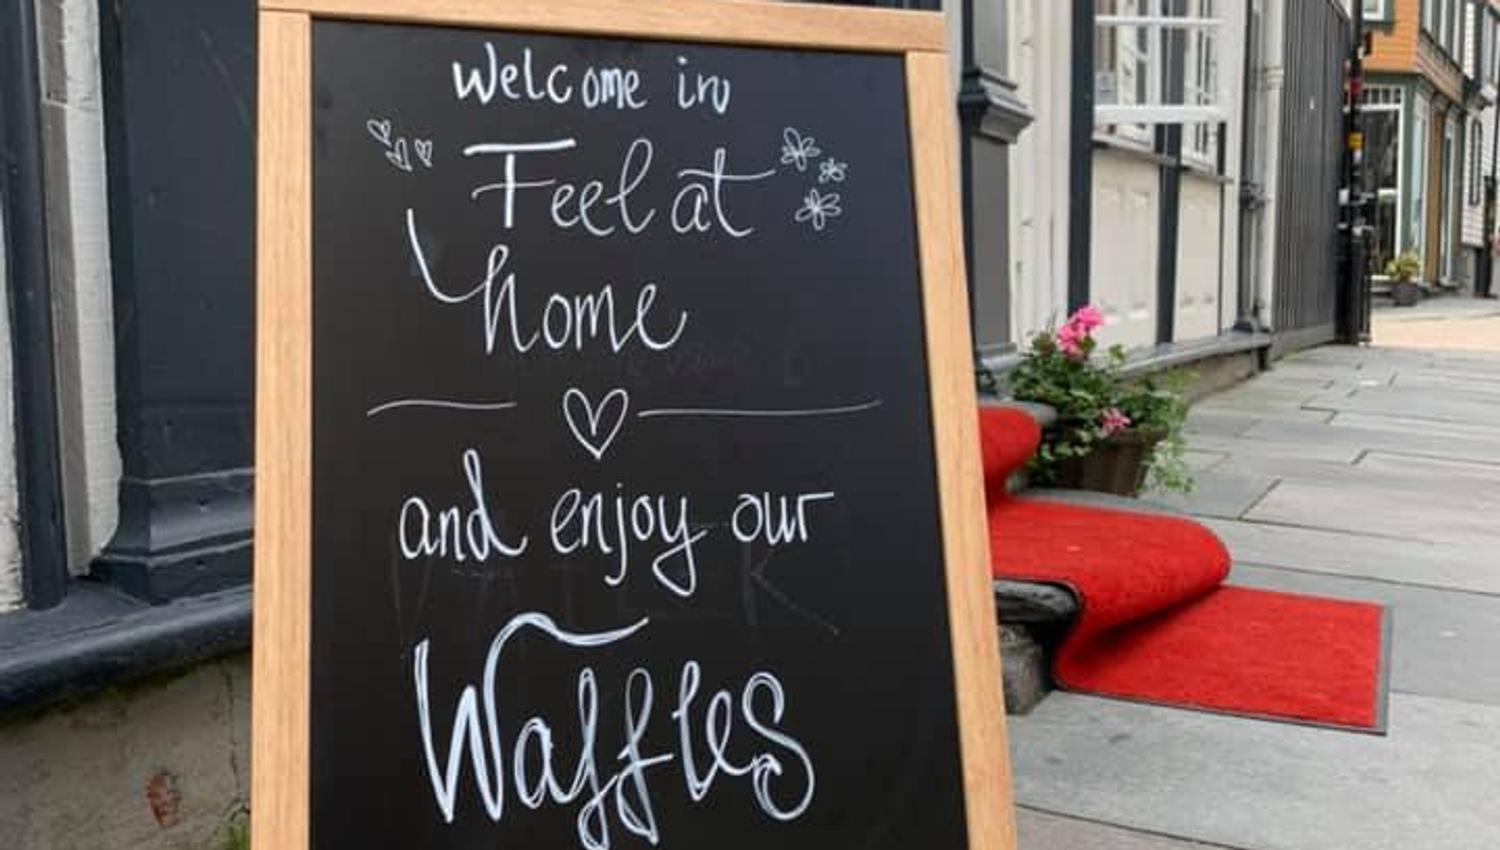 Welcome in
Feel at
home
and enjoy our
Waffles